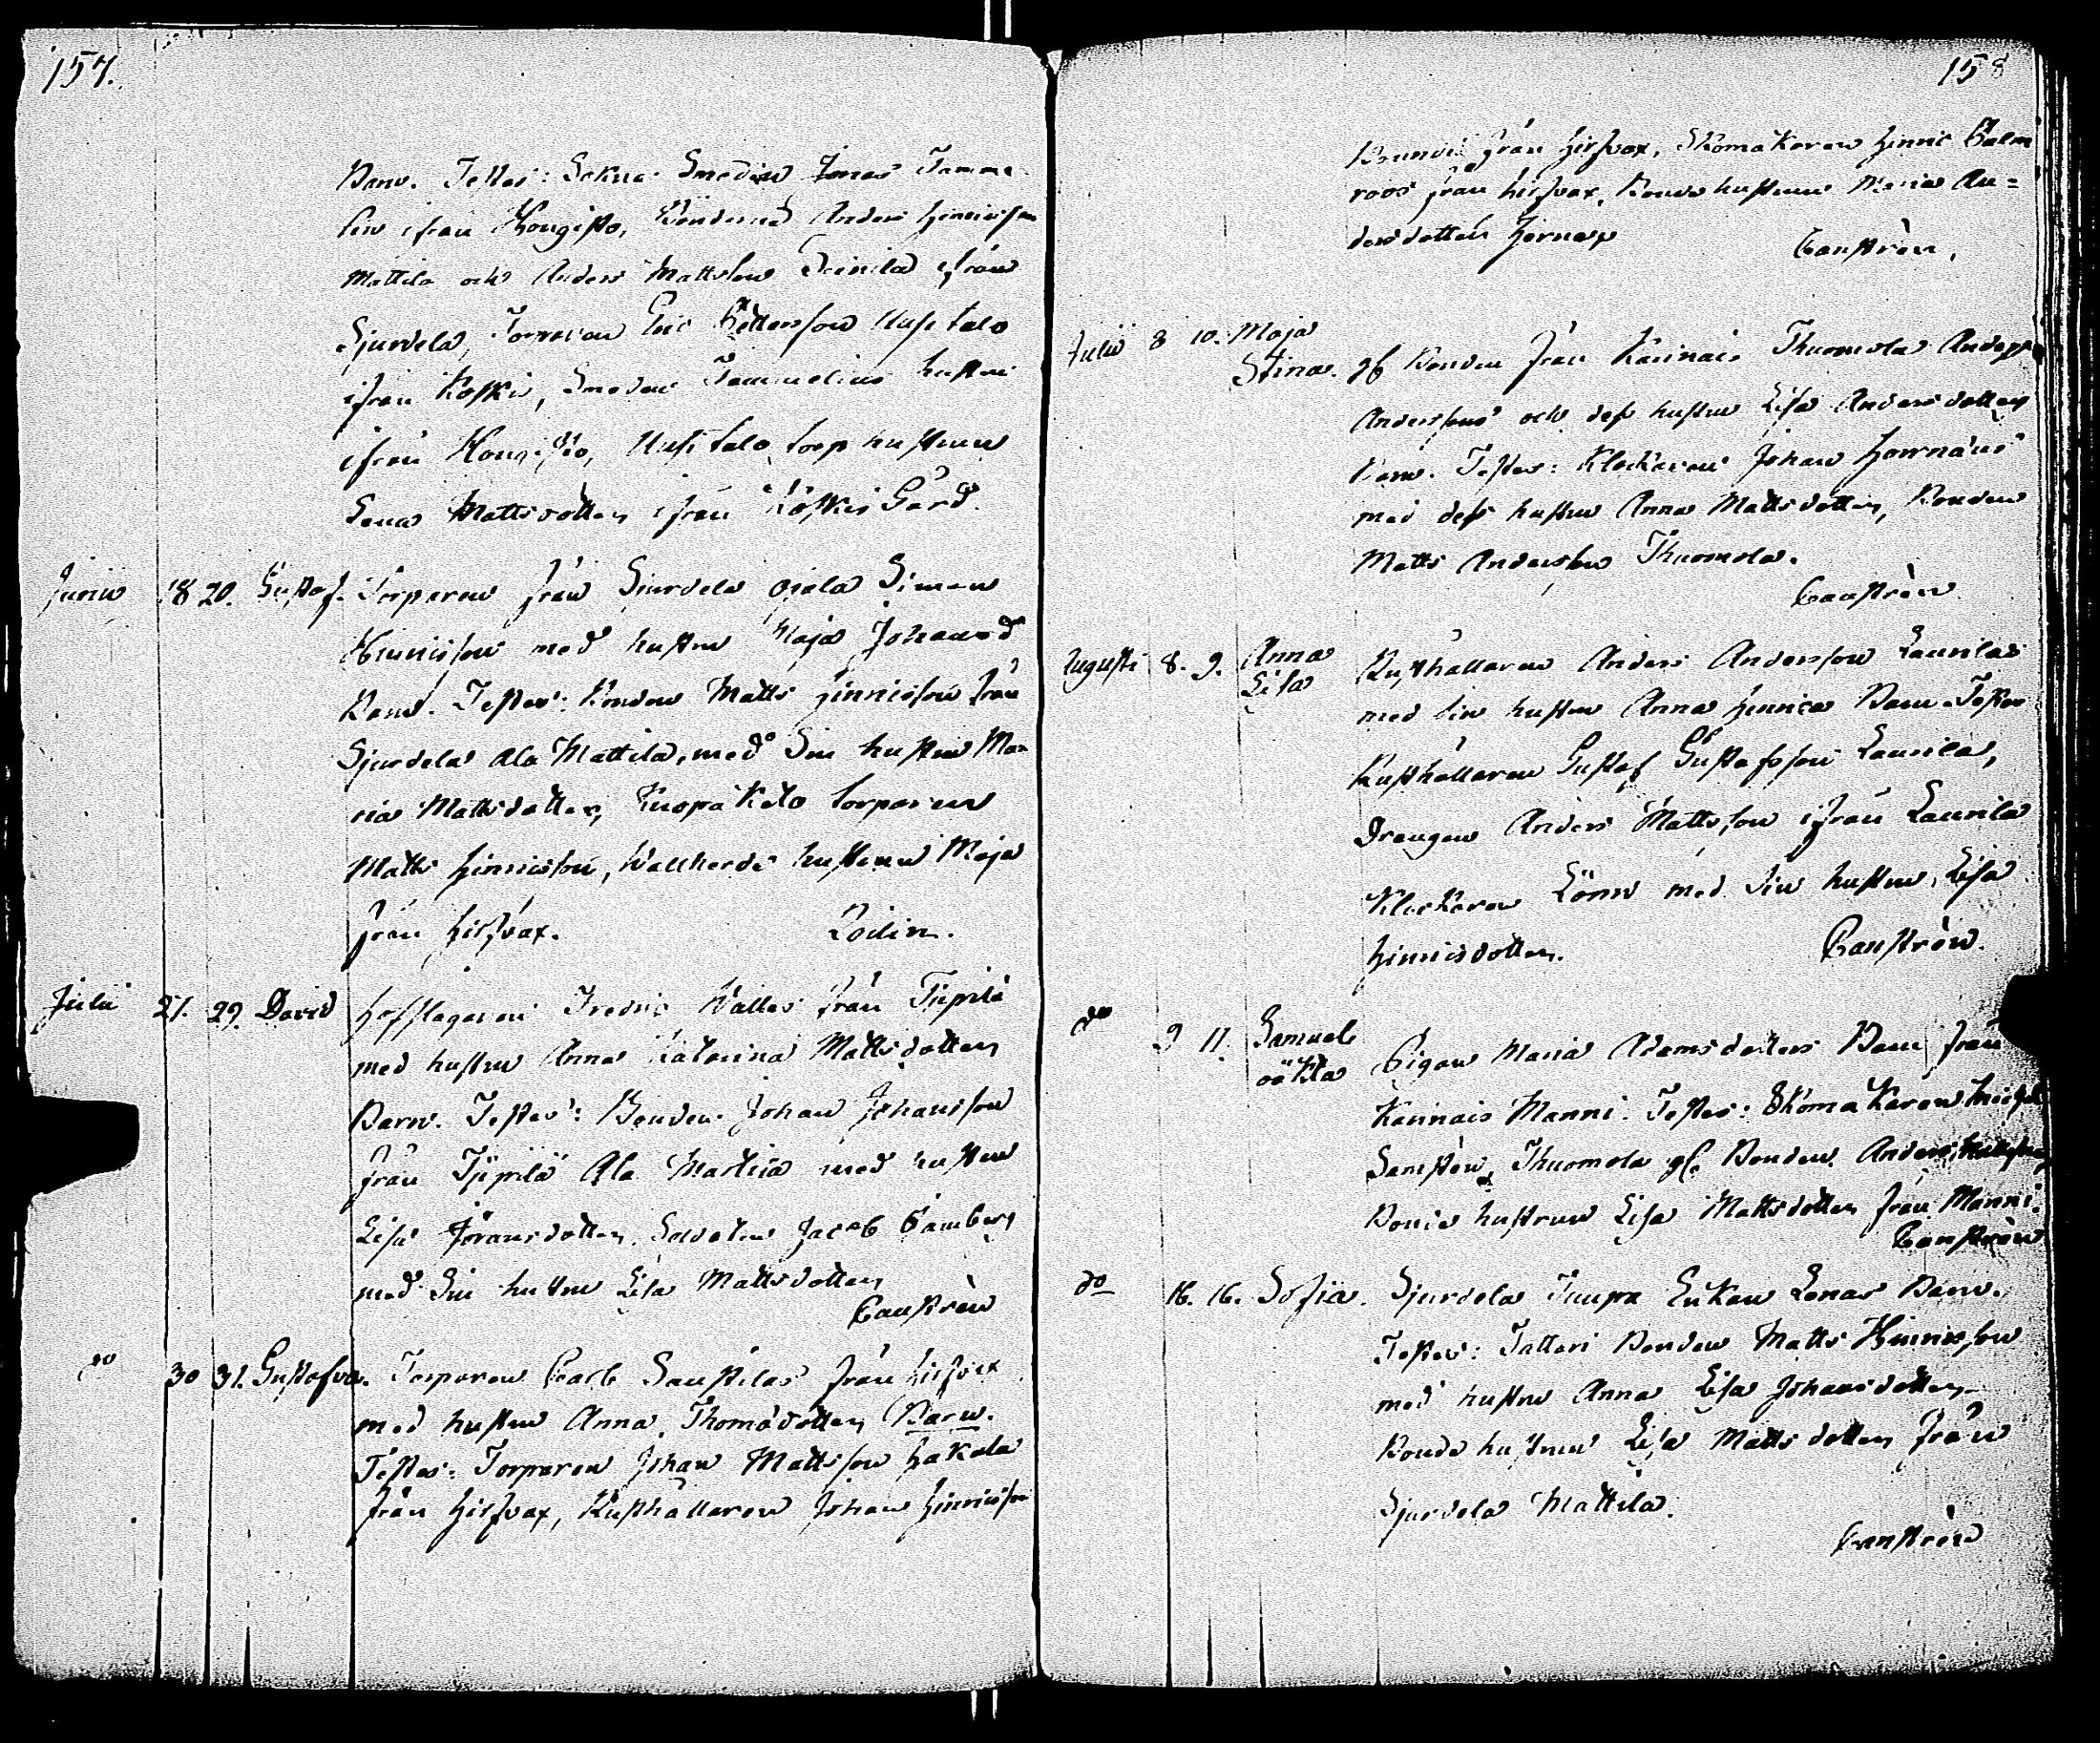 157.
Barn. Testes: Sokne Smeden Jonas Tamme
lin ifrån Hongisto, Bönderne Anders Hinricsson
Mattila och Anders Mattsson ifrån
Sjurdela, Torparen Eric Pettersson Uusitalo
ifrån Koski, Smeden Tammelins hustru
ifrån Hongisto, Uusitalo torp hustrun
Lena Mattsdotter ifrån Koskis Gård.
Junii 18 20. Gustaf. Torparen från Siurdela Ojala Simon
Hinricsson med hustru Maja Johansd
Barn. Testes: Bonden Matts Hinricsson från
Sjurdela Ala Mattila, med Sin hustru Ma
ria Mattsdotter, Torparen
Matts Hinricsson, Wallherde hustrun Maja
från Hirfvax. Rodin.
Julii 27. 29. David Hofslagaren Fredric Walles från Tjipilä
med hustru Anna Katarina Mattsdotter
Barn. Testes: Bonden Johan Johansson
från Tjipilä Ala Marttila med hustru
Lisa Göransdotter, Soldaten Jacob Bamberg
med Sin hustru Lisa Mattsdotter
Castrèn
do 30 31. Gustafva. Torparen Carl Saustilas från Hirfvax
med hustru Anna Thomasdotter Barn.
Testes: Torparen Johan Mattsson Hakala
från Hirfvax, Rusthållaren Johan Hinricsson
158
från Hirfvax, Skomakaren Hinric Palm
roos från Hirfvax, Bonde hustrun Maria An=
dersdotter
Castrèn.
Julii 8 10. Maja
Stina. gf Bonden från Karinais Thuomola Anders
Anderssons och dess hustru Lisa Andersdotter
Barn. Testes: Klockaren Johan Hornæus
med dess hustru Anna Mattsdotter, Bonden
Matts Andersson Thuomola.
Castrèn
Augusti 8. 9. Anna
Lisa Rusthållaren Anders Andersson Laurilas
med sin hustru Anna Hinrics Barn. Testes
Rusthållaren Gustaf Gustafsson Laurila,
Drengen Anders Mattsson ifrån Laurila
Klockaren Lönn med sin hustru Lisa
Hinricsdotter. Castrèn.
do 9 11. Samuel
oäkta Pigan Maria Adamsdotters Barn från
Karinais Manni. Testes: Skomakaren Michel
Samstén, Thuomola gf. Bonden Anders Mattsson
Bonde hustrun Lisa Mattsdotter från Manni.
Castrèn
do 16. 16. Sofia. Sjurdela Tuupa Enkan Lenas Barn.
Testes: Tatteri Bonden Matts Hinricsson
med hustru Anna Lisa Johansdotter
Bonde hustrun Lisa Mattsdotter från
Sjurdela Mattila.
Castrèn